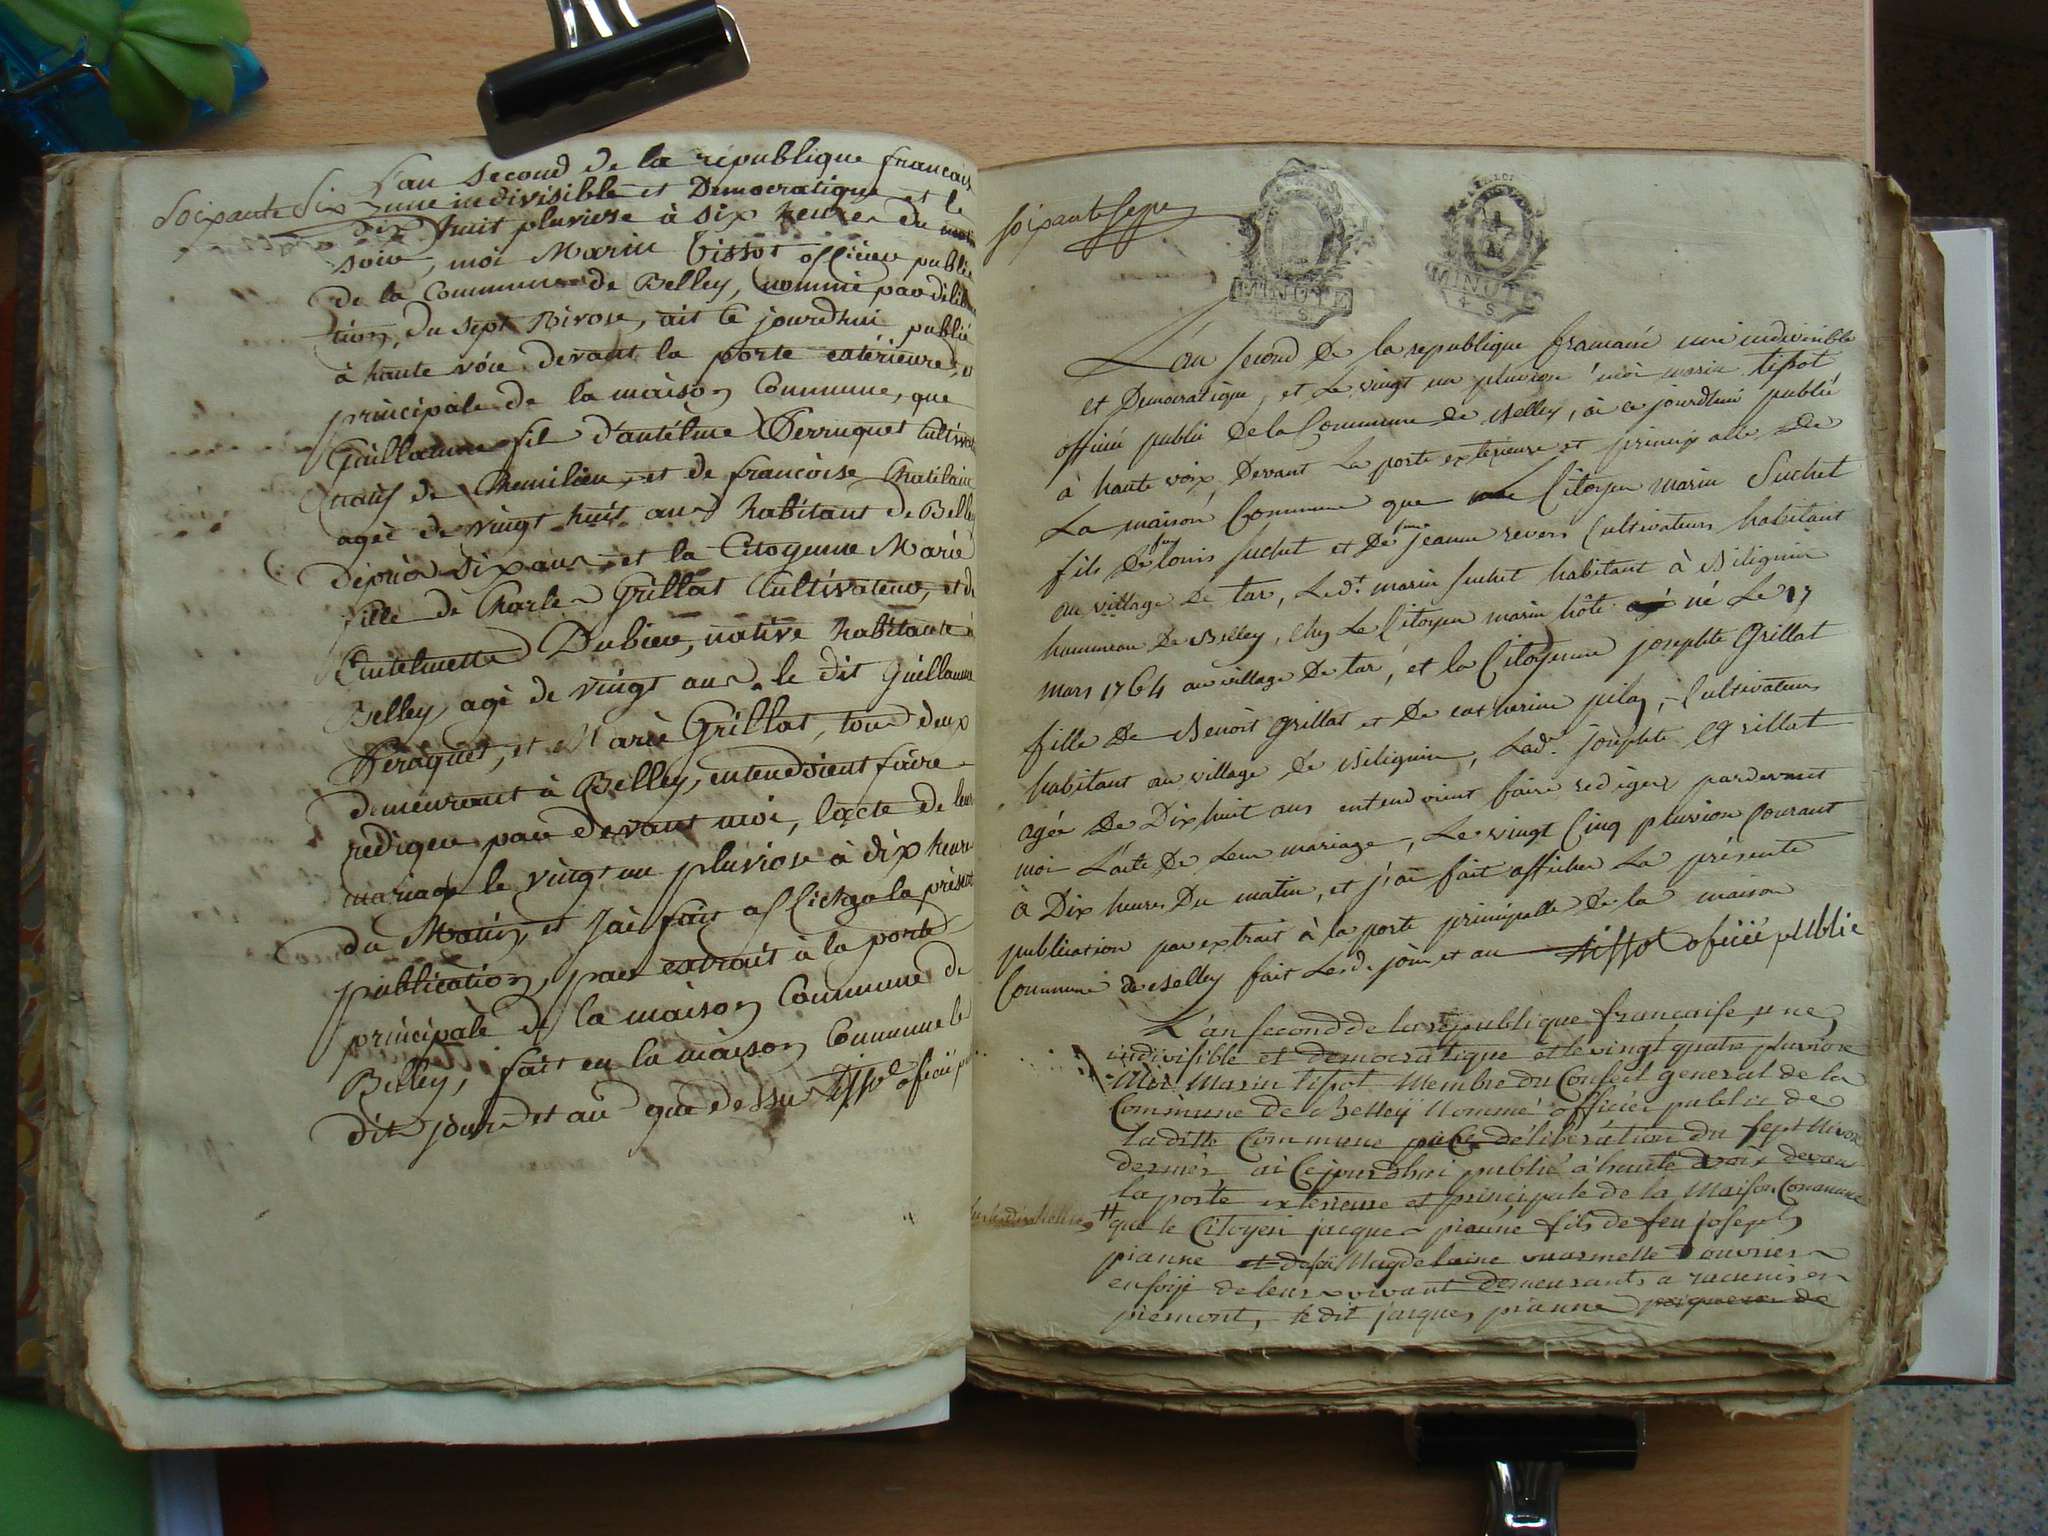 Soixante Six
L'an second de la république francais
une indivisible et Democratique et le
dix huit pluviose à six heures du
soir, moi Marin Tissot officier public
de la Commune de Belley, nommé par délibera
tion, du sept Nivose, ait ce jourdhui publié
à haute vôie devant la porte extérieure,
principale de la maison Commune, que
Guillaume fil d'antélme Perruquet Cultivat
natif de Chemilieu, et de francoise Chatilain
agé de vingt huit ans habitant de Belley
dépuis dix ans et la Citoyenne Marie
fille de Charle Grillat Cultivateur, et de
Entelmette Dubieu, native habitante à
Belley, agé de vingt ans. le dit Guillaume
Peraquet, et Marie Grillat, tous deux
demeurant à Belley, entendoient faire
rediger par devant moi, lacte de leur
mariage le vingt un pluviose à dix heure
du Matin, et J'ai fait afficher la présent
publication, par extrait à la porte
principale de la maison Commune de
Belley, fait en la maison Commune le
dit jour et an que dessu Tissot oficié
soixante sept
MINUTE
4 S.
LOI
MINUTE
4 S.
L'an second De la republique francaise une indivisible
et Democratique, et Le vingt un pluviose moi marin tissot
officié public De la Commune de Belley, ai ce jourdhui publié
à haute voix Devant La porte extérieure et principalle De
La maison Commune que Citoyen marin Suchet
fils De feu Louis suchet et De jeanne revers Cultivateurs habitant
au village De tar, Led.t marin suchet habitant à Bilignin
hammeau De Belley, chez Le Citoyen marin hôte né Le 17
mars 1764 au village De tar, et la Citoyenne josephte Grillat
fille De Benoit Grillat et De catherine pilaz, Cultivateurs
habitant au village De Bilignin, Lad.e josephte Grillat
agée De Dix huit ans entendoient faire rediger pardevant
moi L'acte De Leur mariage, Le vingt Cinq pluviose Courant
à Dix heures Du matin, et j'ai fait afficher La présente
publication par extrait à la porte principalle De la maison
Commune de Belley fait Led. jour et an Tissot oficié publie
L'an second de la république francaise, une,
indivisible et democratique et le vingt quatre pluviose
Moi Marin tissot Membre du Conseil general de la
Commune de Belley Nommé officier public de
la ditte Commune par déliberation du sept Nivose
dernier ai Cejourdhui publié à haute voix devant
la porte exterieure et principale de la Maison Commune
que le Citoyen jacque pianne fils de feu joseph
pianne et de Magdelaine ouvriers
en soye de leurs vivant demeurants a en
piémont, le dit jacques pianne